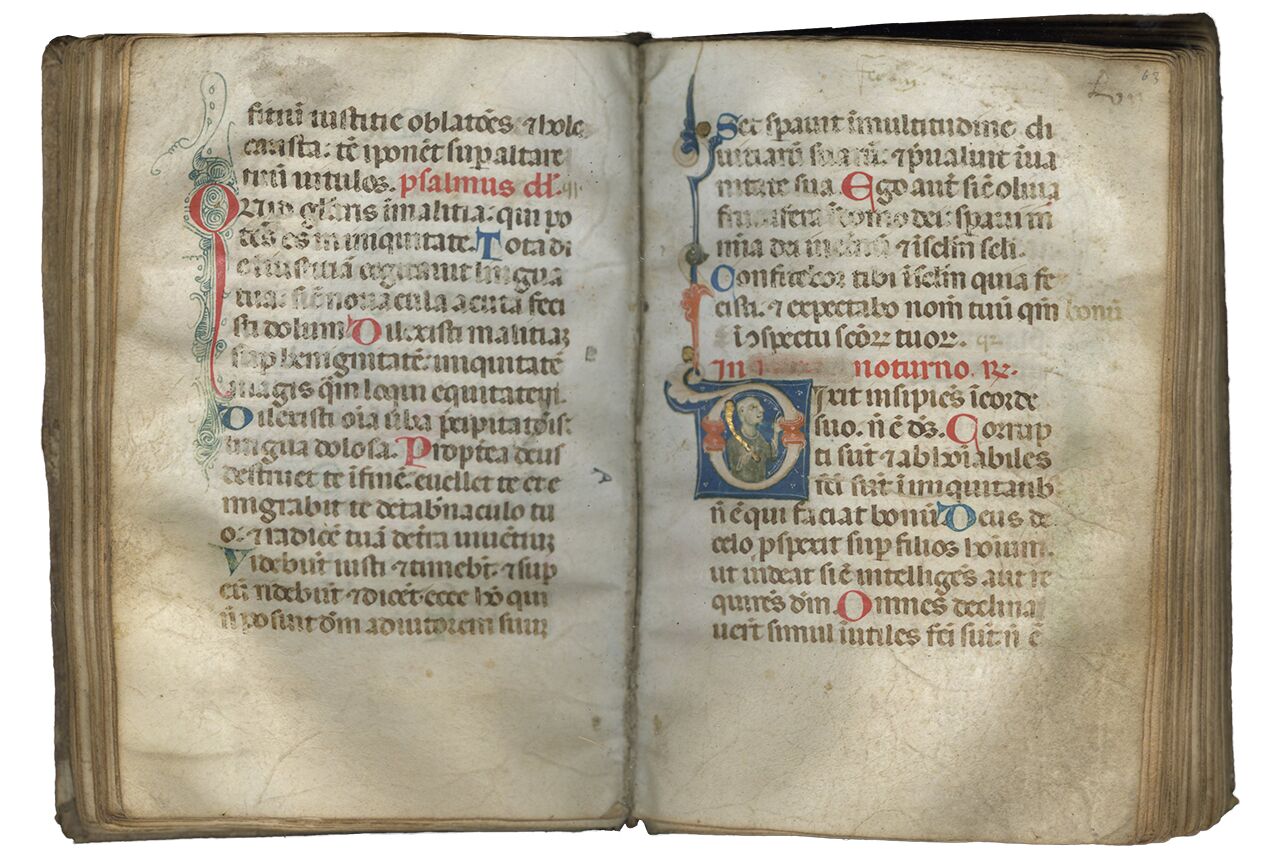 ficiū iusticie oblatōes ⁊ holo
causta: tē īponēt sup altare
tuū uitulos. psalmus dd.
Quid glāris ī malitia: qui po
tēs es in iniquitate. Tota di
e iniusticiā cogitauit lingua
tua: sic̄ nouacula acuta feci
sti dolum. Dilexisti malitiaꝫ
sup benignitatē: iniquitatē
magis qm̄ loqui equitateꝫ.
Dilexisti oīa ūba p̄cipitatōis:
lingua dolosa. Proptea deus
destruet te ī finē: euellet te et e
migrabit te de tab̄naculo tu
o: ⁊ radicē tuā de t̄ra uiuētiuꝫ
Videbūt iusti ⁊ timebūt: ⁊ sup
eū ridebūt ⁊ dicēt: ecce hō qui
nō posuit dm̄ adiutorem suuꝫ
63
Set spauit ī multitudine di
uitiarū suarū: ⁊ p̄ualuit ī ua
nitate sua. Ego aut̄ sic̄ oliua
fructifera ī domo dei: spaui in
mīa dei ī et̄nū ⁊ ī sc̄lm sc̄li.
Confitebor tibi ī sc̄lm quia fe
cisti: ⁊ expectabo nom̄ tuū qm̄ bonū
ī ɔspectu scōꝝ tuoꝝ.
In noturno. ꝶ.
Dixit insipiēs ī corde
suo: nō ē dš. Corrup
ti sūt ⁊ abhoīabiles
fc̄i sūt ī iniquitatib
nō ē qui faciat bonū. Deus de
celo pspexit sup filios hoīum:
ut uideat si ē intelligēs aut re
quirēs dm̄. Omnes declina
uerūt simul īutiles fc̄i sūt: nō ē